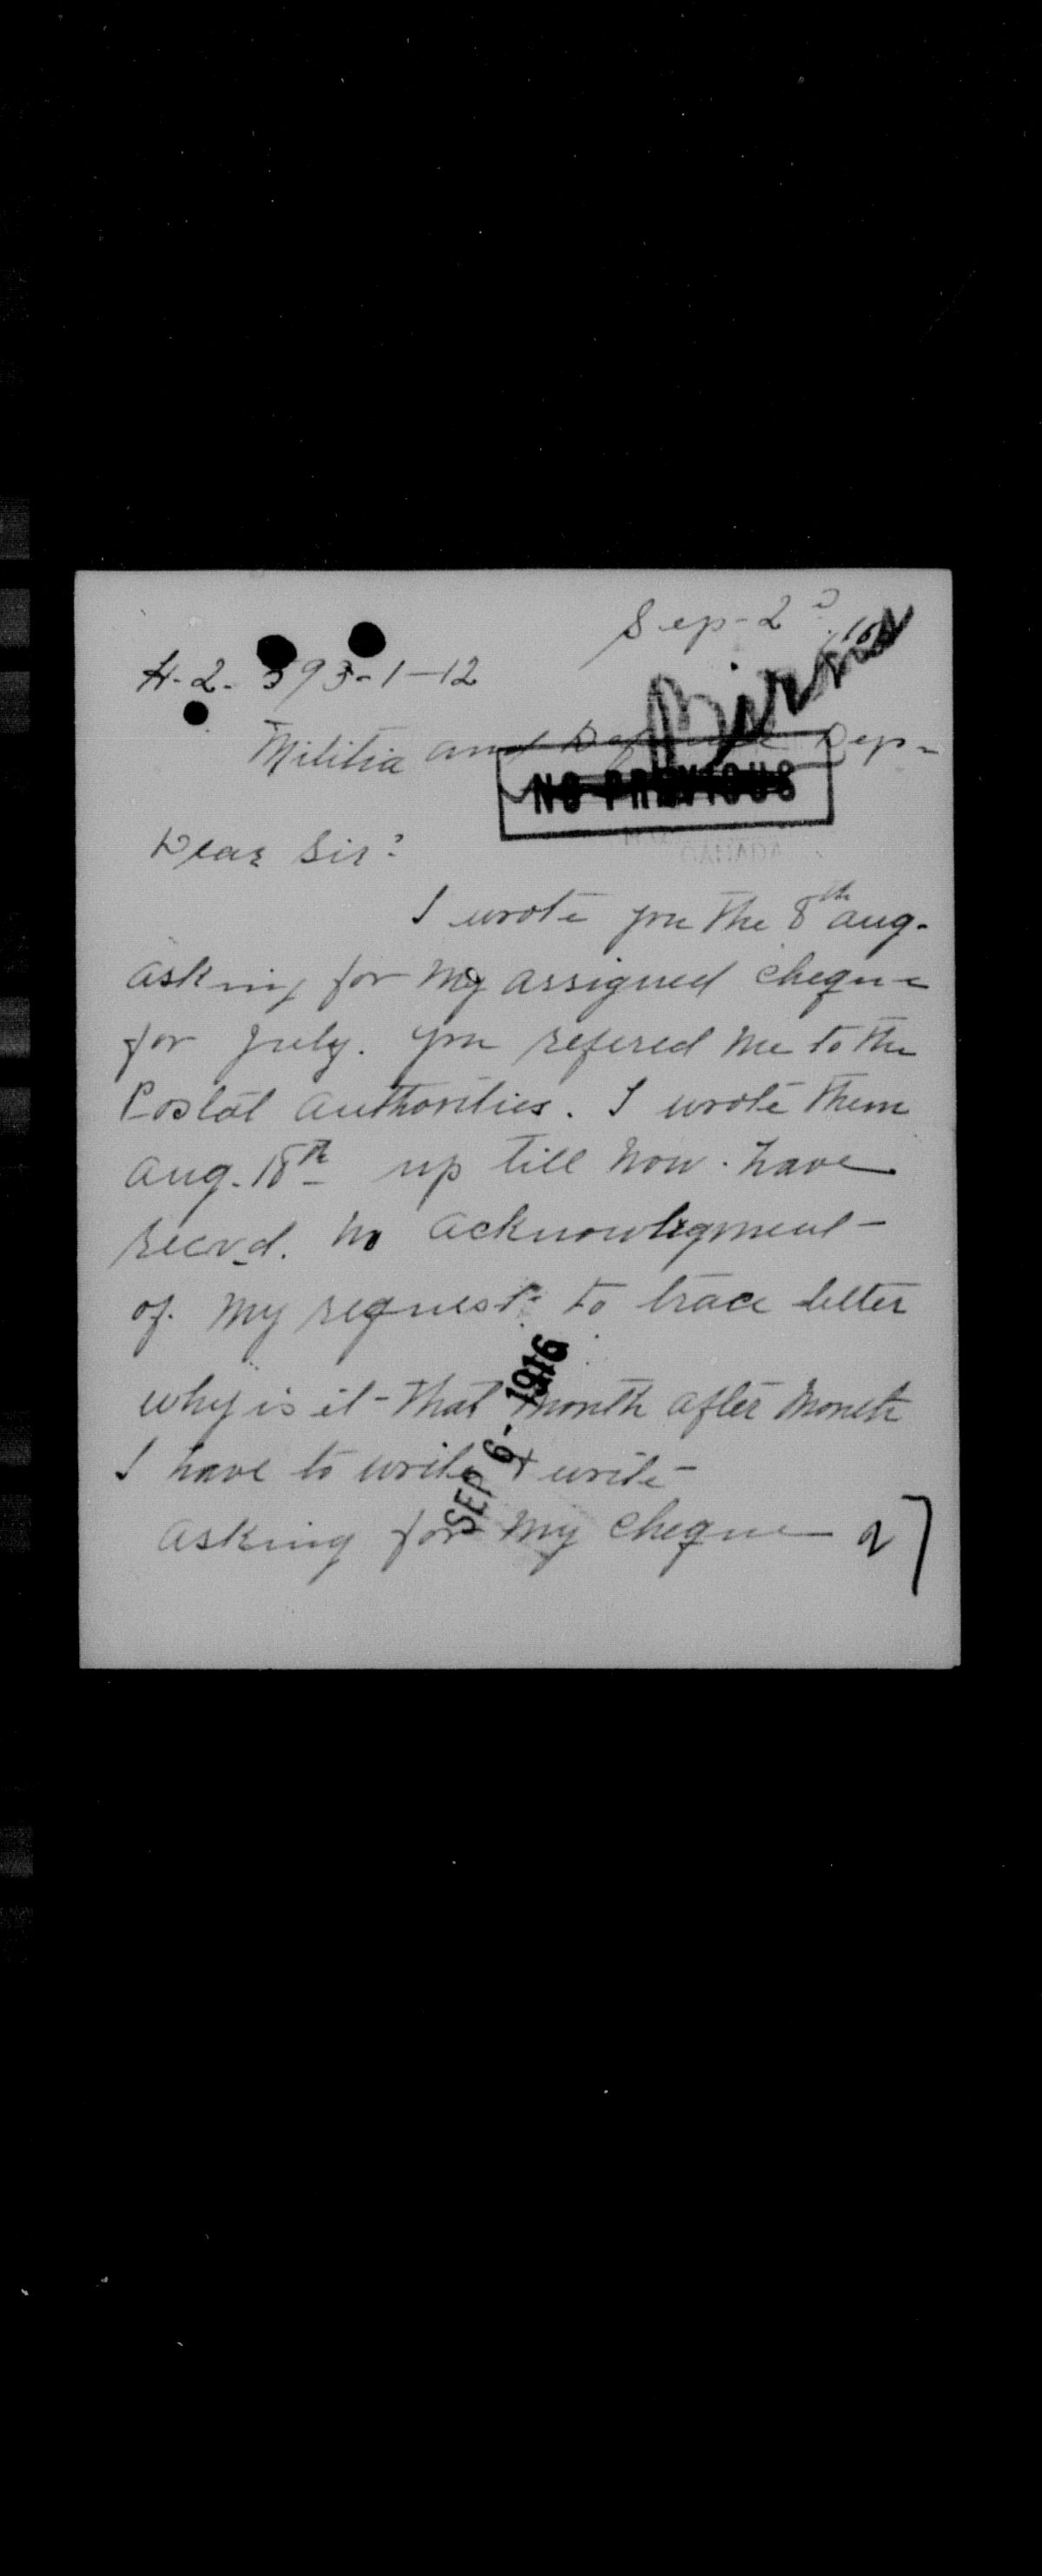 Sep-2ᵈ. 16
H-2-593-1-12
Militia and Defence Dep-
NO PREVIOUS
CANADA
Dear Sir:
I wrote you the 8th aug.
asking for my assigned cheque
for July. you refered me to the
Postal authorities. I wrote them
aug. 18th up till now. have
recvd. no acknowlegment-
of. my request to trace letter
why is it- that month after month
I have to write + write
SEP 6- 1916
asking for my cheque
27